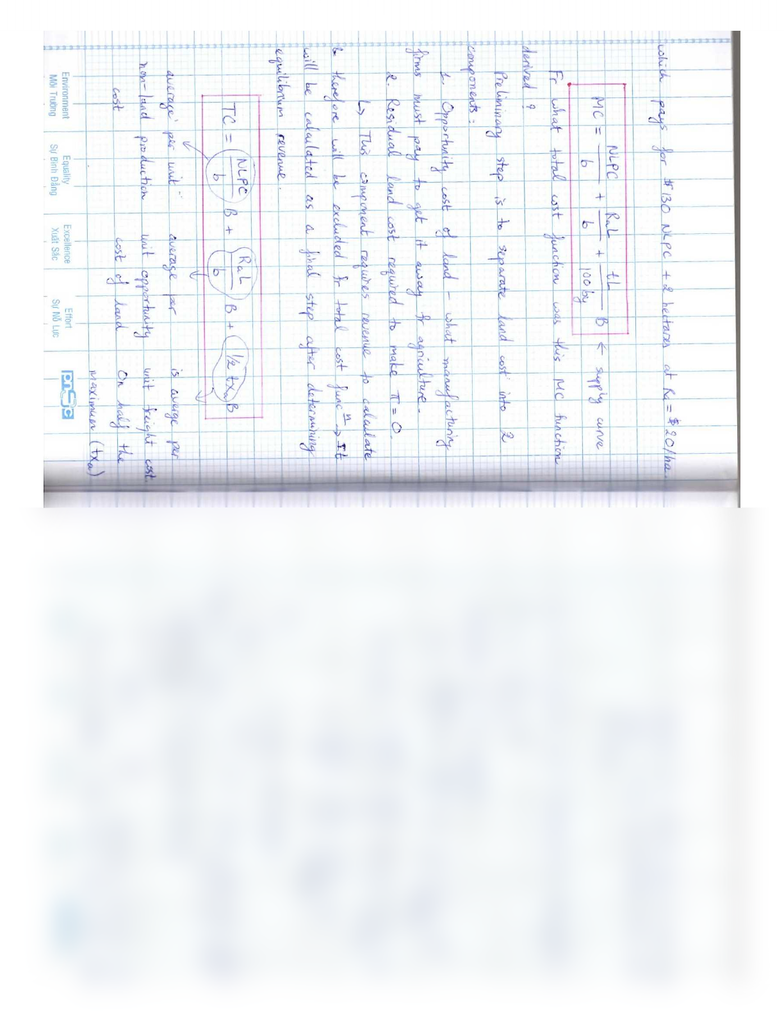 which pays for $130 NLPC + 2 hectares at Ra = $20/ha.
MC = NLPC/b + RaL/b + tL/100by B ← supply curve
Fr what total cost function was this MC function
derived?
Preliminary step is to separate land cost into 2
components:
1. Opportunity cost of land – what manufacturing
firms must pay to get it away fr agriculture.
2. Residual land cost required to make π = 0
↳ This component requires revenue to calculate
& therefore will be excluded fr total cost funcⁿ → It
will be calculated as a final step after determining
equilibrium revenue.
TC = (NLPC/b) B + (RaL/b) B + (1/2 txₐ) B
average per unit average per is average per
non-land production unit opportunity unit freight cost
cost cost of land On half the
maximum (txₐ)
Environment Equality Excellence Effort
Môi Trường Sự Bình Đẳng Xuất Sắc Sự Nỗ Lực